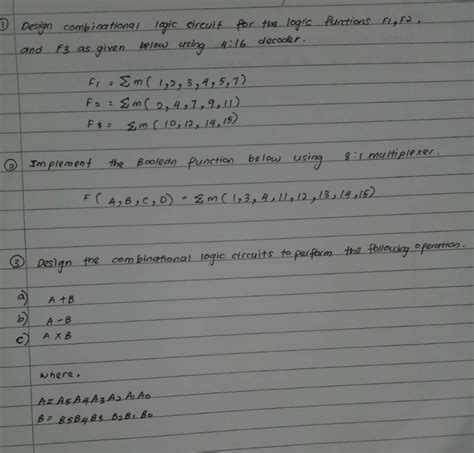 ① Design combinational logic circuit for the logic functions F1, F2,
and F3 as given below using 4:16 decoder.
F1 = Σm ( 1,2,3,4,5,7)
F2 = Σm ( 2,4,7,9,11)
F3 = Σm ( 10,12,14,15)
② Implement the Boolean function below using 8:1 multiplexer.
F ( A,B,C,D) = Σm (1,3,4,11,12,13,14,15)
③ Design the combinational logic circuits to perform the following operation.
a) A + B
b) A - B
c) A x B
where,
A = A5 A4 A3 A2 A1 A0
B = B5 B4 B3 B2 B1 B0